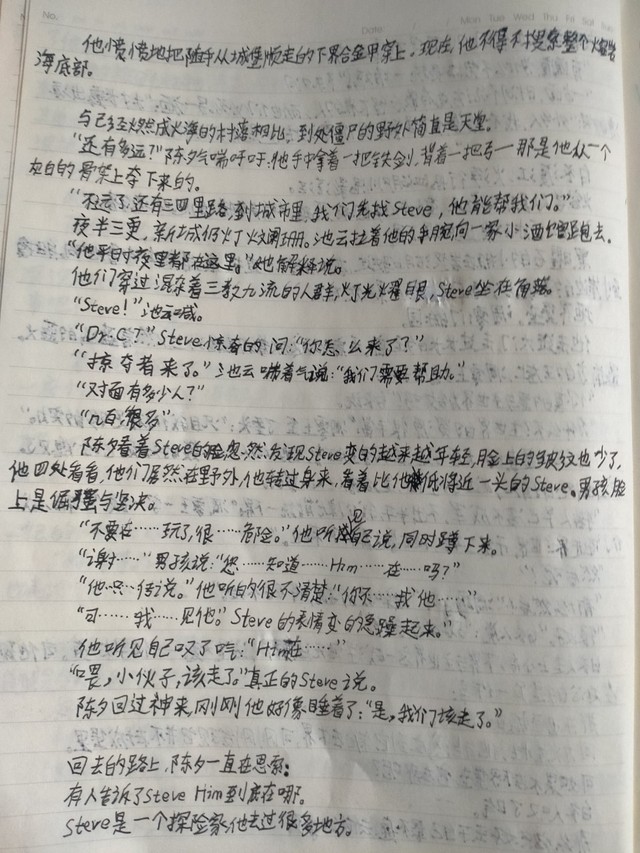 No.
Date
Mon Tue Wed Thu Fri Sat
他愤愤地把随手从城堡顺走的下界合金甲穿上。现在,他不得不搜索整个
海底部。
与已经燃成火海的村落相比,到处僵尸的野外简直是天堂。
“还有多远?”陈夕气喘吁吁,他手中拿着一把铁剑,背着一把弓—那是他从一个
灰白的骨架上夺下来的。
“不远了,还有三四里路,到城市里,我们先找Steve,他能帮我们。”
夜半三更,新城仍灯火阑珊。池云拉着他的手腕向一家小酒馆跑去。
“他平时夜里都在这里。”他解释说。
他们穿过混杂着三教九流的人群,灯光耀眼,Steve坐在角落。
“Steve!”池云喊。
“Dr.C?”Steve惊奇的问:“你怎么来了?”
“掠夺者来了。”池云喘着气说:“我们需要帮助。”
“对面有多少人?”
“几百,很多”
陈夕看着Steve的脸,忽然发现Steve变的越来越年轻,脸上的皱纹也少了,
他四处看看,他们居然在野外,他转过身来,看着比他低将近一头的Steve。男孩脸
上是倔强与坚决。
“不要在……玩了,很……危险。”他听见自己说,同时蹲下来。
“谢……”男孩说:“您……知道……Him……在……吗?”
“他……只…传说。”他听的很不清楚:“你不……找他……”
“可……我……见他。”Steve的表情变的急躁起来。”
他听见自己叹了口气:“Him在……”
“喂,小伙子,该走了。”真正的Steve说。
陈夕回过神来,刚刚他好像睡着了:“是,我们该走了。”
回去的路上,陈夕一直在思索:
有人告诉了Steve Him到底在哪。
Steve是一个探险家,他去过很多地方。